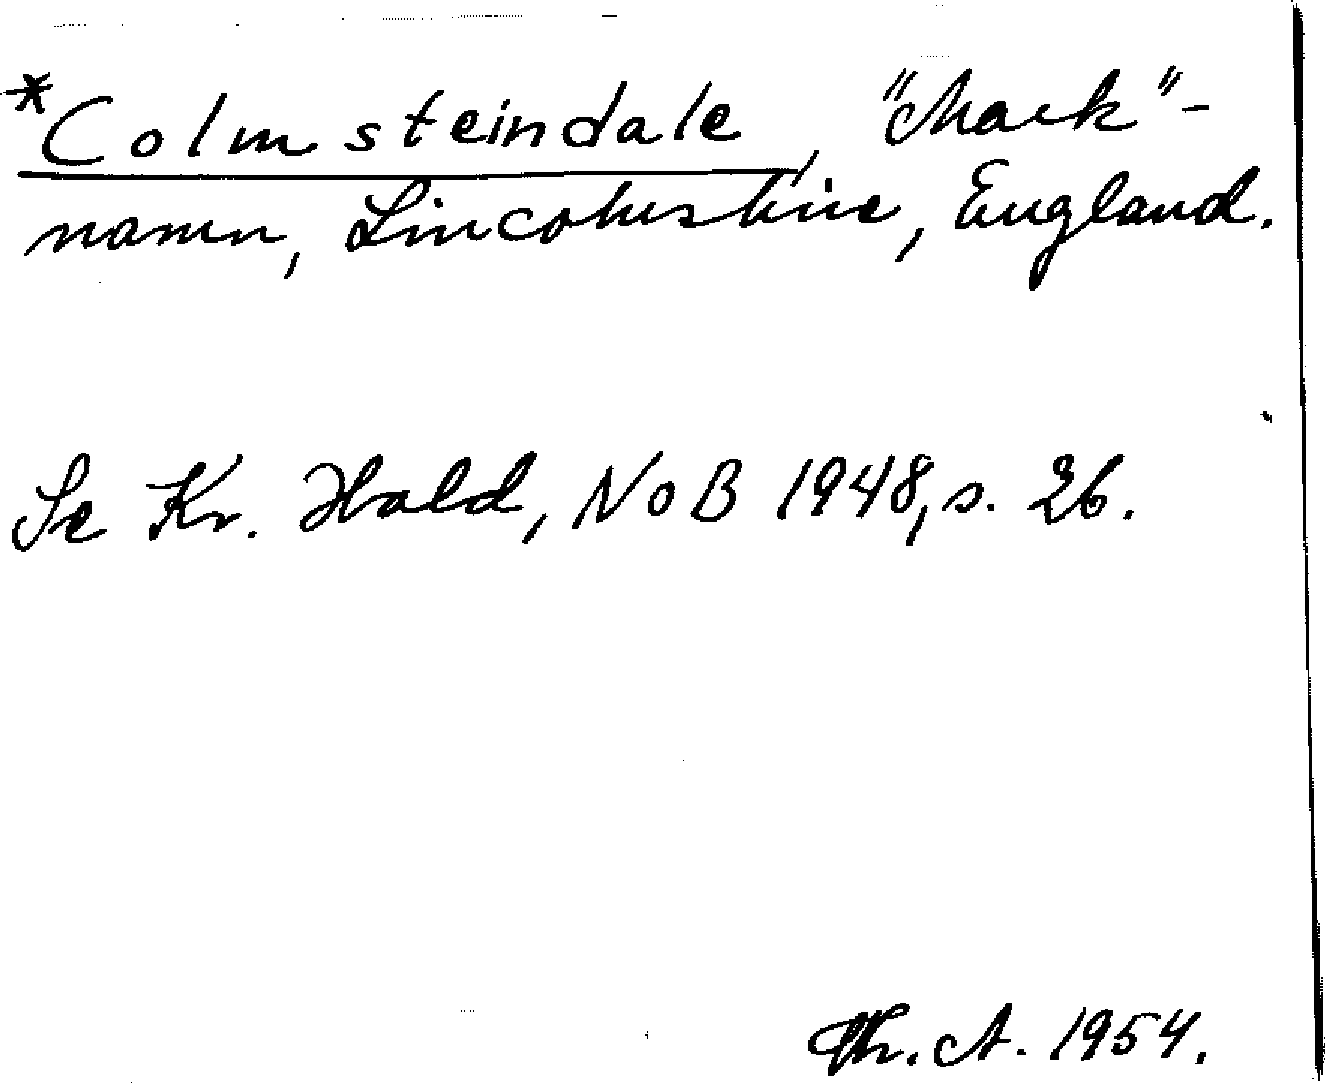 *Colmsteindale, "Mark"-
namn, Lincolnshire, England.
Se Kr. Hald, NoB 1948, s. 26.
Th. A. 1954.